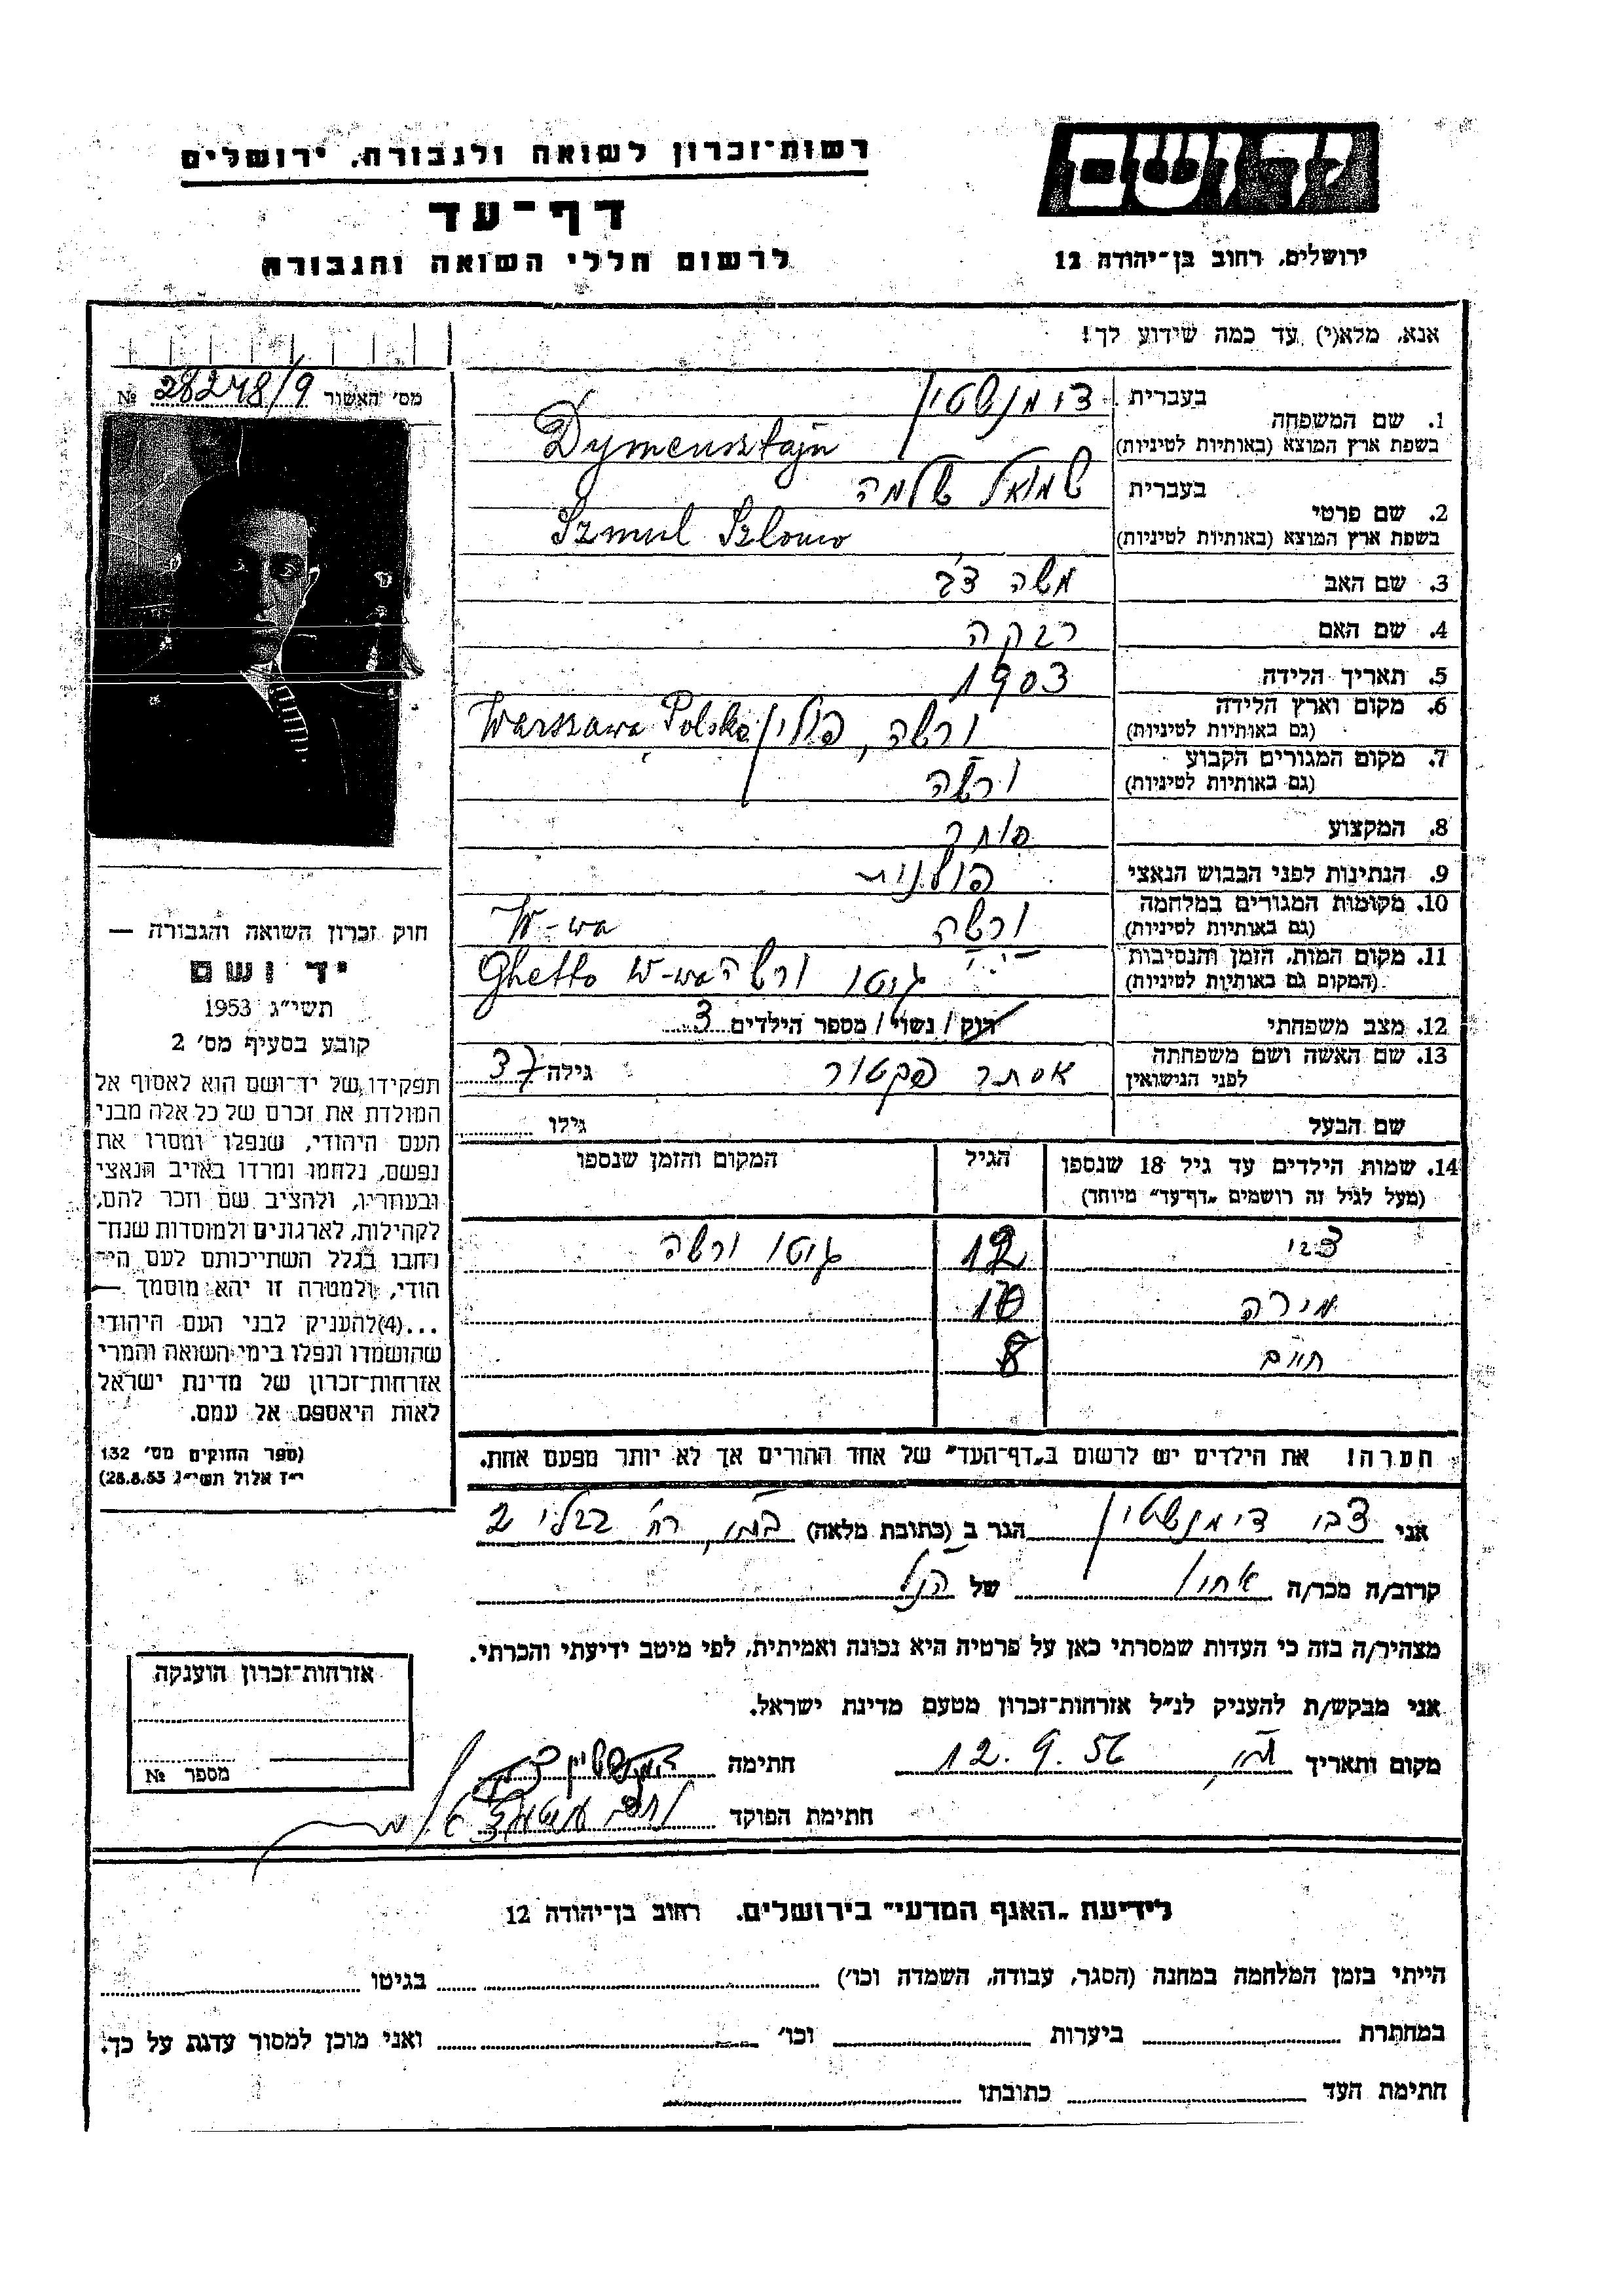 יד ושם
ירושלים, רחוב בן־יהודה 12
רשות־זכרון לשואה ולגבורה, ירושלים
דף־עד
לרשום חללי השואה והגבורה
אנא, מלא(י) עד כמה שידוע לך!
מס' האשור 28278/9 №
1. שם המשפחה בעברית דימנשטיין
בשפת ארץ המוצא (באותיות לטיניות) Dymensztajn
2. שם פרטי בעברית שמואל שלמה
בשפת ארץ המוצא (באותיות לטיניות) Szmul Szlomo
3. שם האב משה צבי
4. שם האם רבקה
5. תאריך הלידה 1903
6. מקום וארץ הלידה ורשה, פולין Warszawa, Polska
(גם באותיות לטיניות)
7. מקום המגורים הקבוע ורשה
(גם באותיות לטיניות)
8. המקצוע סוחר
9. הנתינות לפני הכבוש הנאצי פולנית
10. מקומות המגורים במלחמה ורשה W-wa
(גם באותיות לטיניות)
11. מקום המות, הזמן והנסיבות גיטו ורשה Ghetto W-wa
(המקום גם באותיות לטיניות)
12. מצב משפחתי רווק / נשוי / מספר הילדים 3
13. שם האשה ושם משפחתה אסתר פקטור גילה 37
לפני הנישואין
שם הבעל גילו
14. שמות הילדים עד גיל 18 שנספו הגיל המקום והזמן שנספו
(מעל לגיל זה רושמים "דף־עד" מיוחד)
צבי 12 גיטו ורשה
מירה 10
חיים 8
הערה! את הילדים יש לרשום ב"דף־העד" של אחד ההורים אך לא יותר מפעם אחת.
חוק זכרון השואה והגבורה —
יד ושם
תשי"ג 1953
קובע בסעיף מס' 2
תפקידו של יד־ושם הוא לאסוף אל
המולדת את זכרם של כל אלה מבני
העם היהודי, שנפלו ומסרו את
נפשם, נלחמו ומרדו באויב הנאצי
ובעוזריו, ולהציב שם וזכר להם,
לקהילות, לארגונים ולמוסדות שנח־
רבו בגלל השתייכותם לעם הי־
הודי, ולמטרה זו יהא מוסמך —
...(4)להעניק לבני העם היהודי
שהושמדו ונפלו בימי השואה והמרי
אזרחות־זכרון של מדינת ישראל
לאות היאספם אל עמם.
(ספר החוקים מס' 132
י"ז אלול תשי"ג 28.8.53)
אני צבי דימנשטיין הגר ב (כתובת מלאה) רח' 2
קרוב/ה מכר/ה אחין של הנ"ל
מצהיר/ה בזה כי העדות שמסרתי כאן על פרטיה היא נכונה ואמיתית, לפי מיטב ידיעתי והכרתי.
אני מבקש/ת להעניק לנ"ל אזרחות־זכרון מטעם מדינת ישראל.
מקום ותאריך 12.9.56 חתימה
חתימת הפוקד
אזרחות־זכרון הוענקה
מספר №
לידיעת "האגף המדעי" בירושלים, רחוב בן־יהודה 12
הייתי בזמן המלחמה במחנה (הסגר, עבודה, השמדה וכו') בגיטו
במחתרת ביערות וכו' ואני מוכן למסור עדות על כך.
חתימת העד כתובתו